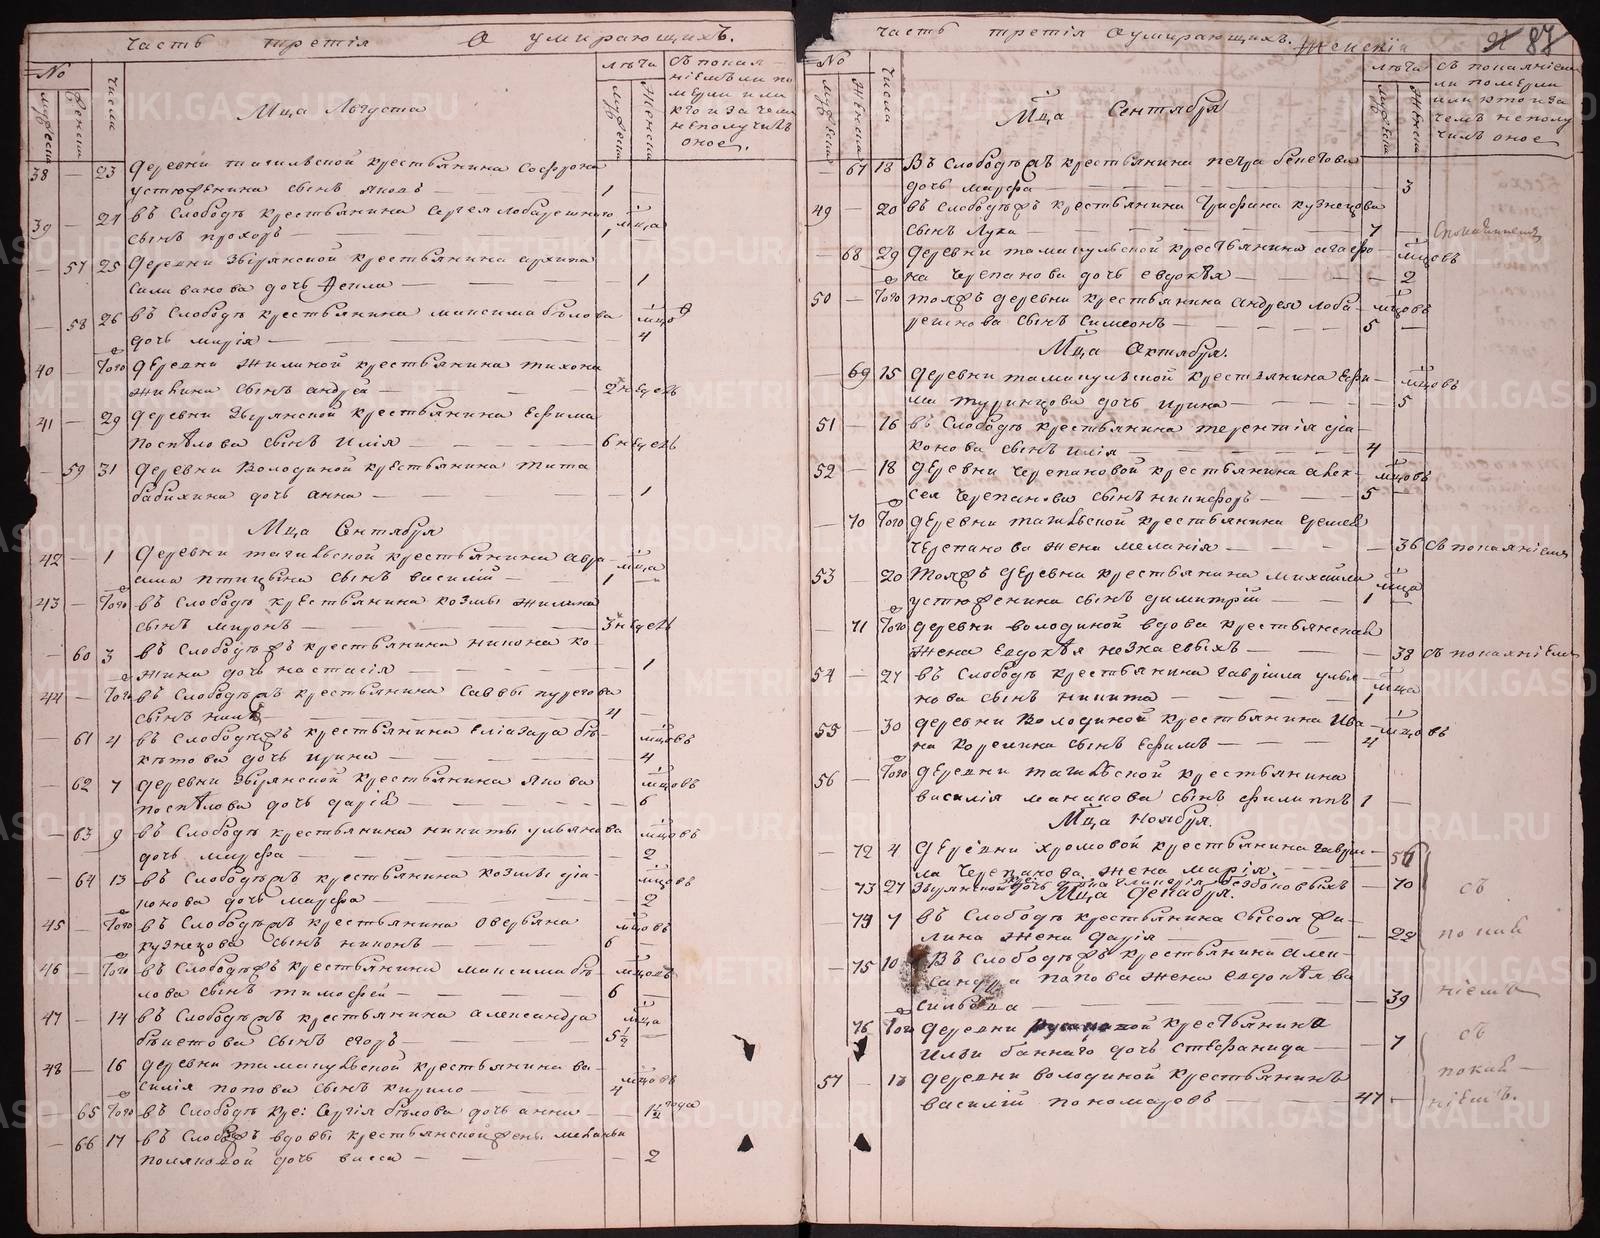 Часть третія О умирающихъ.
№
мужеска
женска
числа
лѣта
мужеска
женска
съ покая-
ніемъ ли по
мерли или
кто и за чемъ
неполучилъ
оное.
Мца Августа
38 — 23 деревни тагильской крестьянина Софрона
устюженина сынъ Яковъ — 1 —
39 — 24 въ Слободѣ крестьянина Сергея Лобарешнаго
сынъ прохоръ — 1 мца
— 57 25 деревни Зырянской крестьянина архипа
Силиванова дочь — 1
— 58 26 въ Слободѣ крестьянина максима бѣлова
дочь марія — 4
40 — Того деревни жилиной крестьянина тихона
жилина сынъ андрей — 2 недель
41 — 29 деревни Зырянской крестьянина Ефима
поспѣлова сынъ илія — 6 недель
— 59 31 деревни Володиной крестьянина тита
бабихина дочь анна — 1
Мца Сентября
42 — 1 деревни тагильской крестьянина авра-
ама птицына сынъ василій — 1 мца
43 — Того въ Слободѣ крестьянина козмы жилина
сынъ миронъ — 3 недель
— 60 3 въ Слободѣ крестьянина никона ко-
жина дочь настасія — 1
44 — Того въ Слободѣ крестьянина Саввы
сынъ — 4
— 61 4 въ Слободѣ крестьянина Еліазара бы-
кѣтова дочь ирина — 4 мцовъ
— 62 7 деревни Зырянской крестьянина Якова
поспѣлова дочь дарія — 6 мцовъ
— 63 9 въ Слободѣ крестьянина никиты ульянова
дочь марфа — 2 мцовъ
— 64 13 въ Слободѣ крестьянина козмы діа-
конова дочь марфа — 2 мцовъ
45 — Того въ Слободѣ крестьянина
кузнецова сынъ никонъ — 6 мцовъ
46 — Того въ Слободѣ крестьянина максима бѣ-
лова сынъ тимофей — 6 мцовъ
47 — 14 въ Слободѣ крестьянина александра
сынъ егоръ — 5½ мца
48 — 16 деревни тамакульской крестьянина ва-
силія попова сынъ кирило — 4 мцовъ
— 65 Того въ Слободѣ крес: Сергія бѣлова дочь анна — 1½ года
— 66 17 въ Слободѣ вдовы крестьянской жены
дочь васса — 2
часть третія О умирающихъ. Женскія
87
№
мужеска
женска
числа
лѣта
мужеска
женска
съ покаяніемъ
ли померли
или кто и за
чемъ неполу
чилъ оное
Мца Сентября
— 67 18 Въ Слободѣ крестьянина петра
дочь марфа — 3
49 — 20 въ Слободѣ крестьянина Трифона кузнецова
сынъ Лука — 7 —
— 68 29 деревни тамакульской крестьянина агафо-
на Черепанова дочь евдокѣя — 2 мцовъ
50 — Того тояжъ деревни крестьянина андрея лоба-
решнова сынъ Симеонъ — 5 мцовъ
Мца Октября.
— 69 15 деревни тамакульской крестьянина Ефи-
ма туринцова дочь ирина — 5 мцовъ
51 — 16 въ Слободѣ крестьянина терентія діа-
конова сынъ илія — 4 —
52 — 18 деревни Черепановой крестьянина алек-
сея Черепанова сынъ никифоръ — 5 мцовъ
— 70 Того деревни тагильской крестьянина еремея
Черепанова жена меланія — 36 съ покаяніемъ
53 — 20 тояжъ деревни крестьянина михайла
устюженина сынъ димитрій — 1 мца
— 71 Того деревни володиной вдова крестьянская
жена Евдокѣя — 38 съ покаяніемъ
54 — 27 въ Слободѣ крестьянина гаврила улья-
нова сынъ никита — 1 мца
55 — 30 деревни Володиной крестьянина Ива-
на корелина сынъ Ефимъ — 4 мцовъ
56 — Того деревни тагильской крестьянина
василія манакова сынъ филиппъ 1 —
Мца Ноября.
— 72 4 деревни хромовой крестьянина гаври-
ла Черепанова жена марія.
— 73 27 Зырянской — 70
Мца декабря.
— 74 7 въ Слободѣ крестьянина
жена дарія — 22
— 75 10 Въ Слободѣ крестьянина алек-
сандра папова жена евдокѣя ва
сильева — 39
— 76 Того деревни крестьянина
Ильи баннаго дочь Стефанида — 7
57 — 13 деревни володиной крестьянинъ
василій пономаревъ — 47 —
съ
покая
ніемъ
съ
покая-
ніемъ.